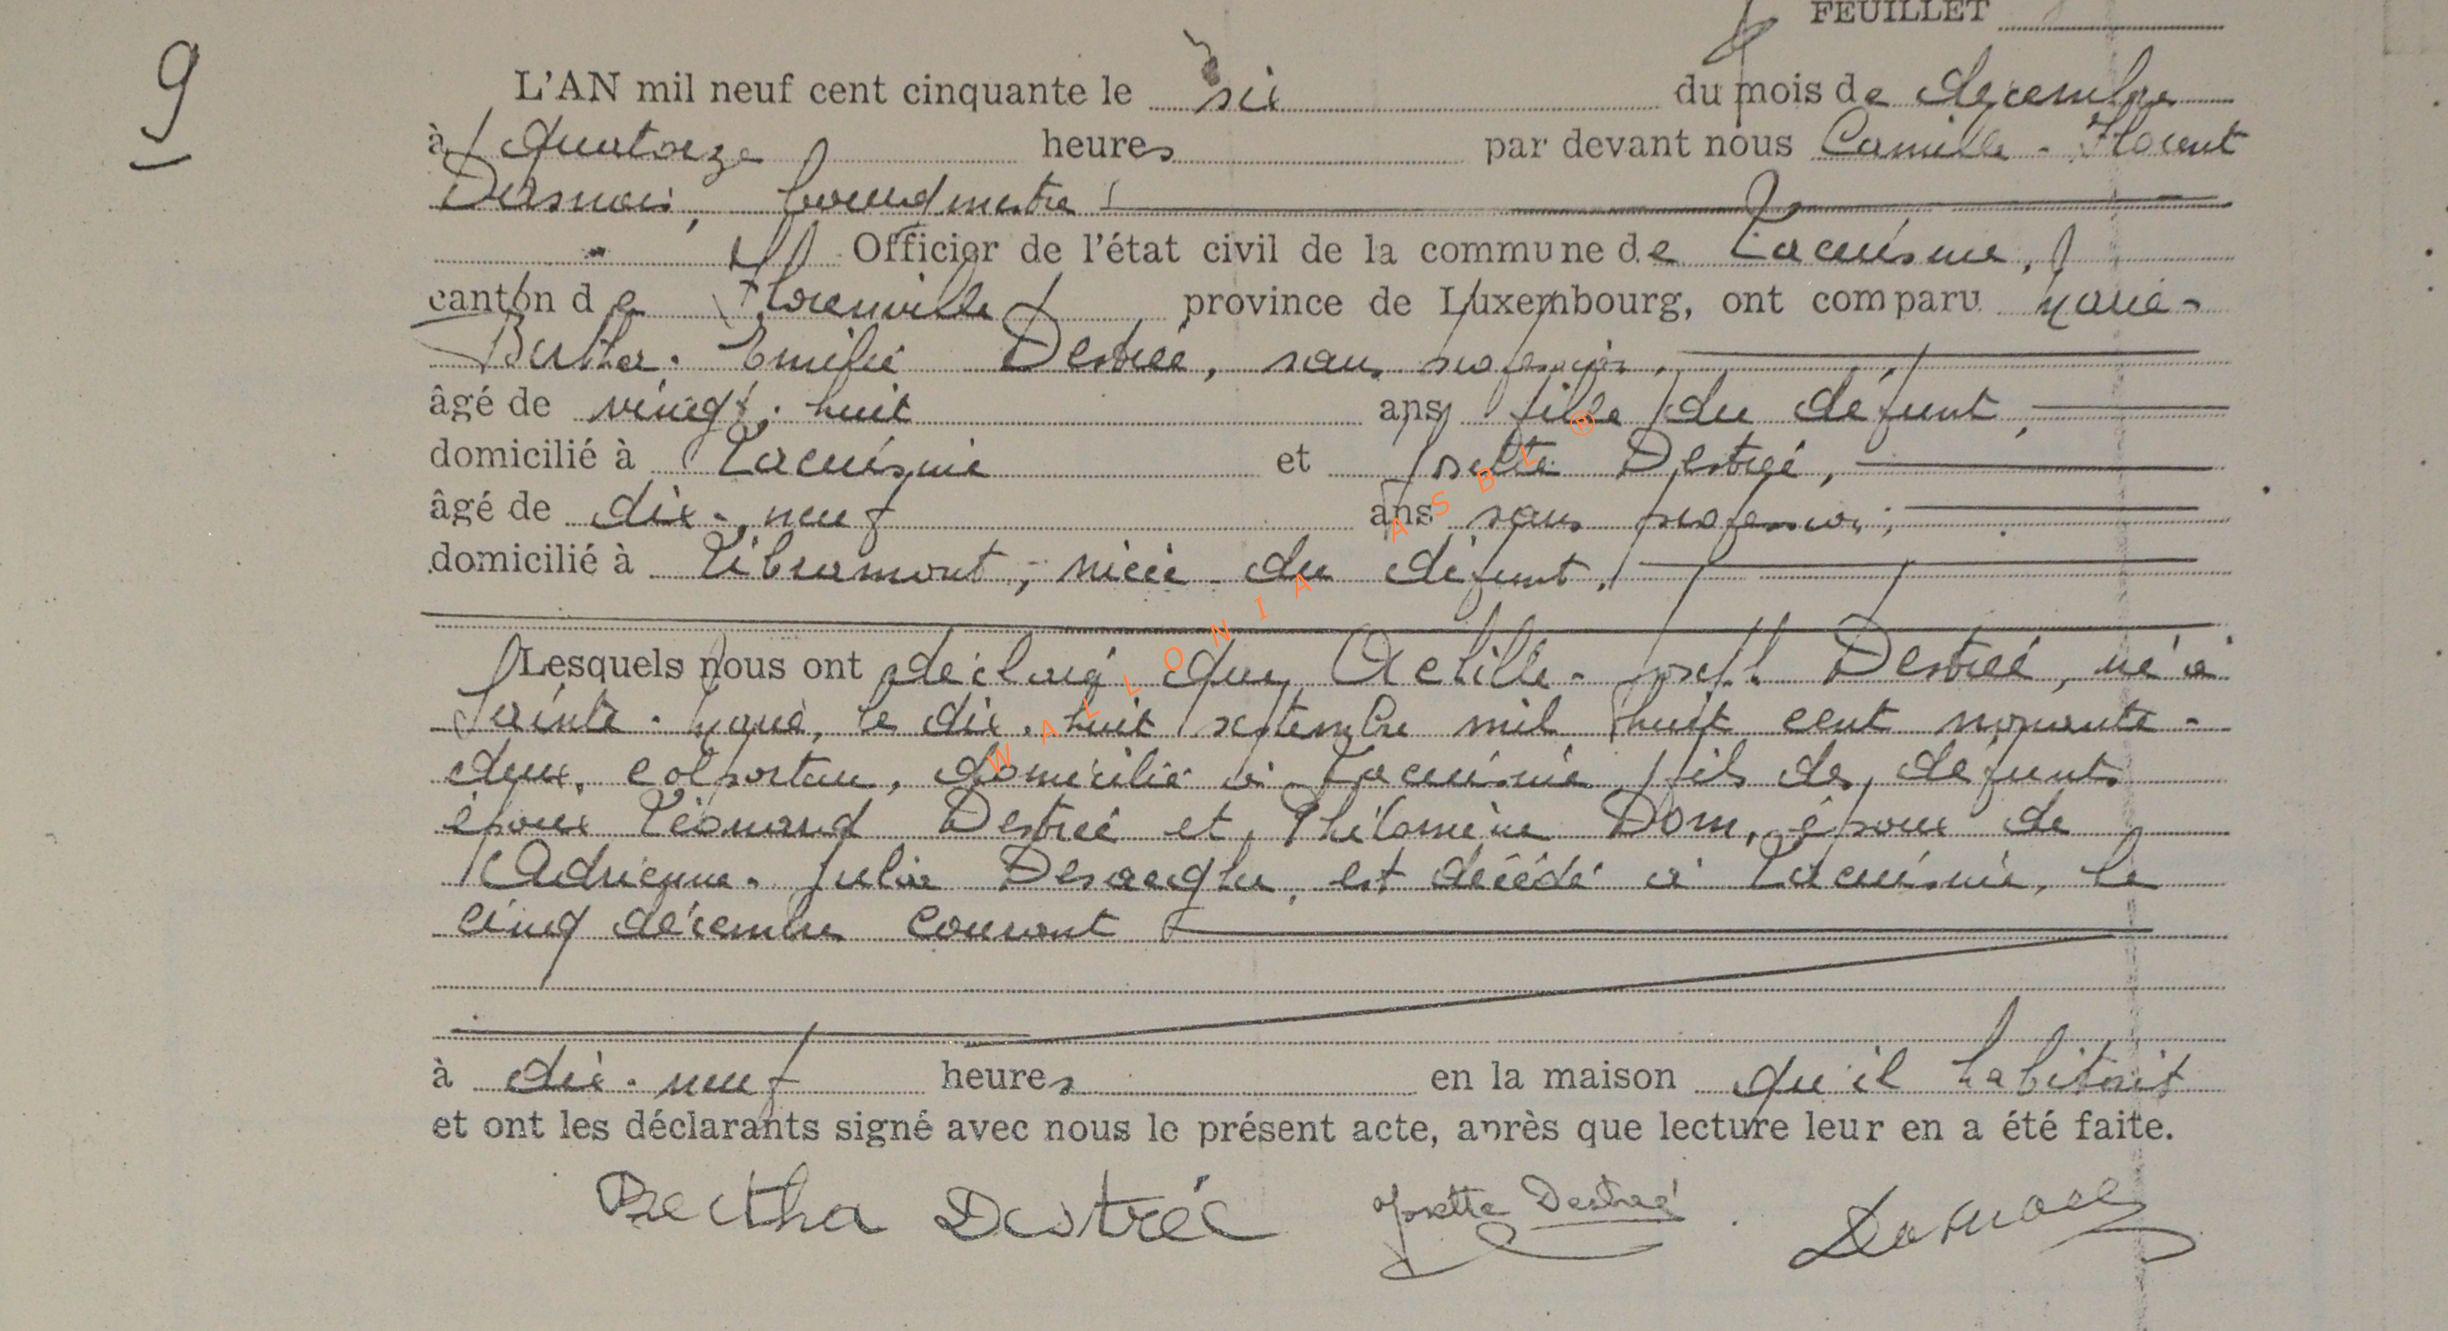 FEUILLET
9
L'AN mil neuf cent cinquante le six du mois de décembre
à quatorze heures par devant nous Camille - Florent
bourgmestre
Officier de l'état civil de la commune de Lacuisine,
canton de Florenville province de Luxembourg, ont comparu Marie-
Bertha - Emilie Destrée, sans profession,
âgé de vingt-huit ans fille du défunt,
domicilié à Lacuisine et Josette Destrée,
âgé de dix-neuf ans sans profession,
domicilié à Libramont, nièce du défunt.
Lesquels nous ont déclaré que Achille - Joseph Destrée, né à
Sainte-Marie, le dix-huit septembre mil huit cent nonante-
deux, colporteur, domicilié à Lacuisine fils des défunts
époux Léonard Destrée et Philomène Dom, époux de
Adrienne - Julia est décédé à Lacuisine, le
cinq décembre courant
à dix-neuf heures en la maison qu'il habitait
et ont les déclarants signé avec nous le présent acte, après que lecture leur en a été faite.
Bertha Destrée Josette Destrée
WALLONIA ASBL ®